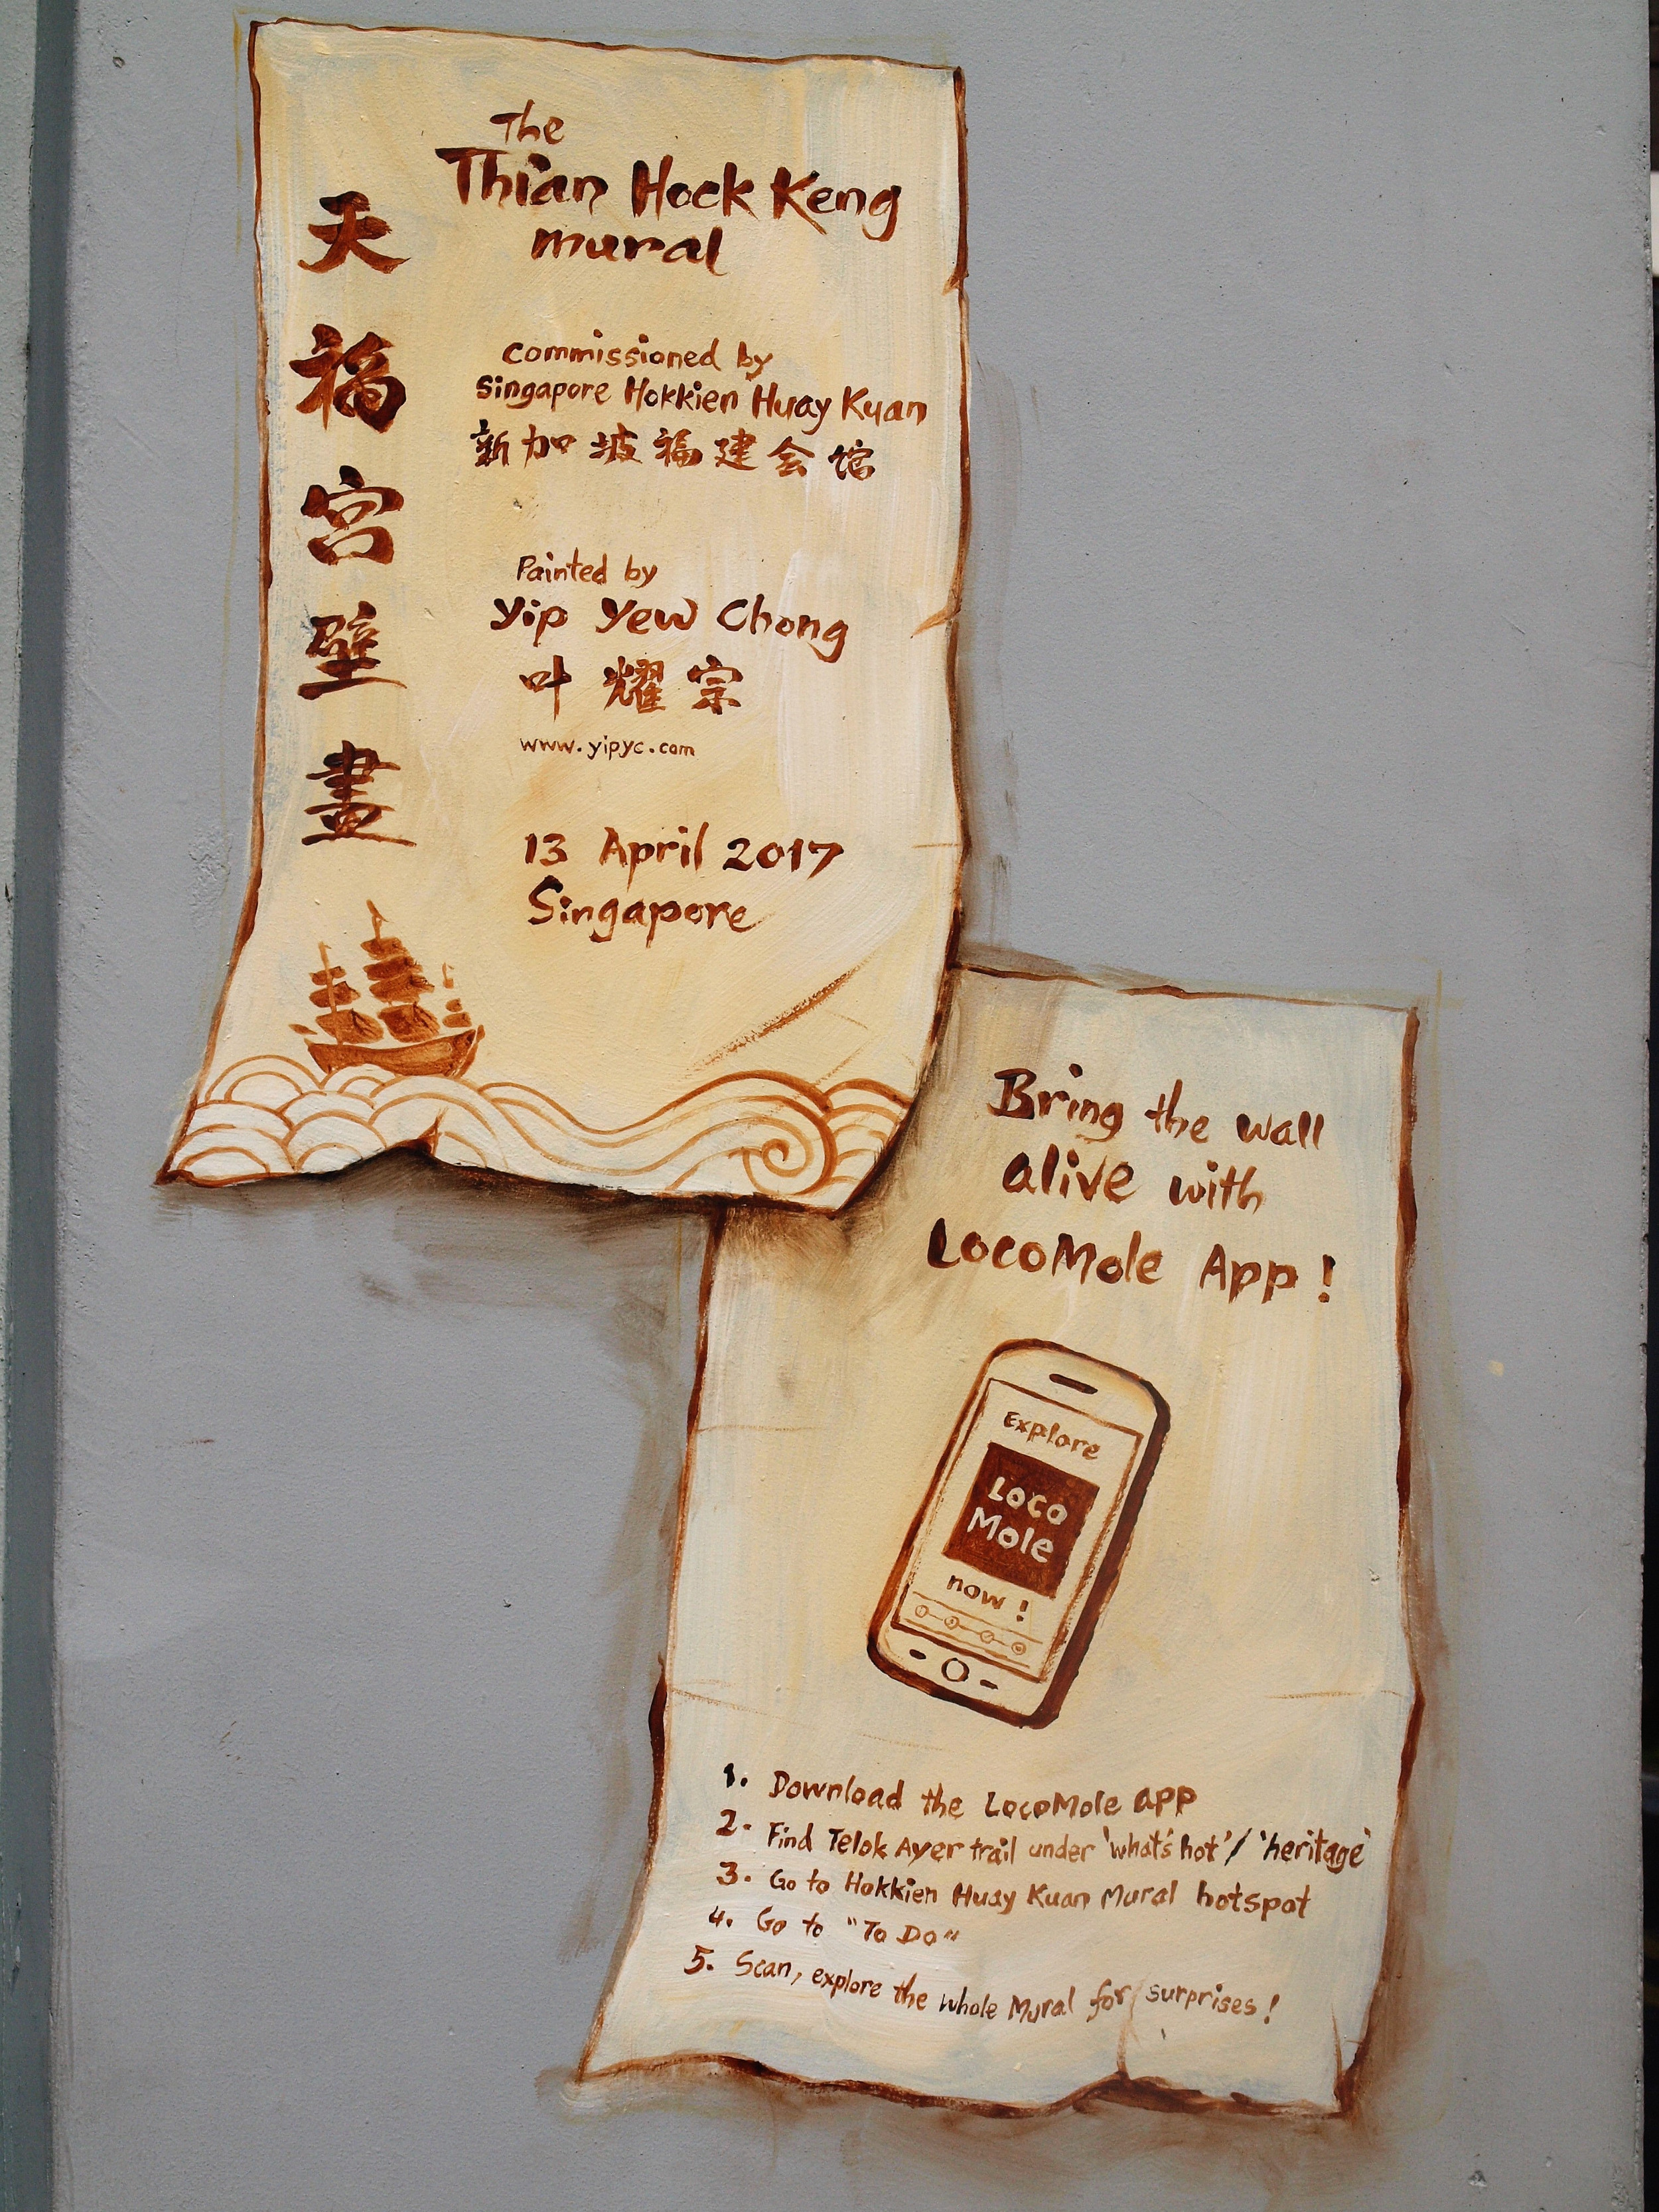 The
Thian Hock Keng
mural
天福宮壁畫
Commissioned by
Singapore Hokkien Huay Kuan
新加坡福建会馆
Painted by
Yip Yew Chong
叶耀宗
www.yipyc.com
13 April 2017
Singapore
Bring the wall
alive with
LocoMole App!
Explore
Loco
Mole
now!
1. Download the LocoMole app
2. Find Telok Ayer trail under 'what's hot'/ 'heritage'
3. Go to Hokkien Huay Kuan Mural hotspot
4. Go to "To Do"
5. Scan, explore the whole Mural for surprises!